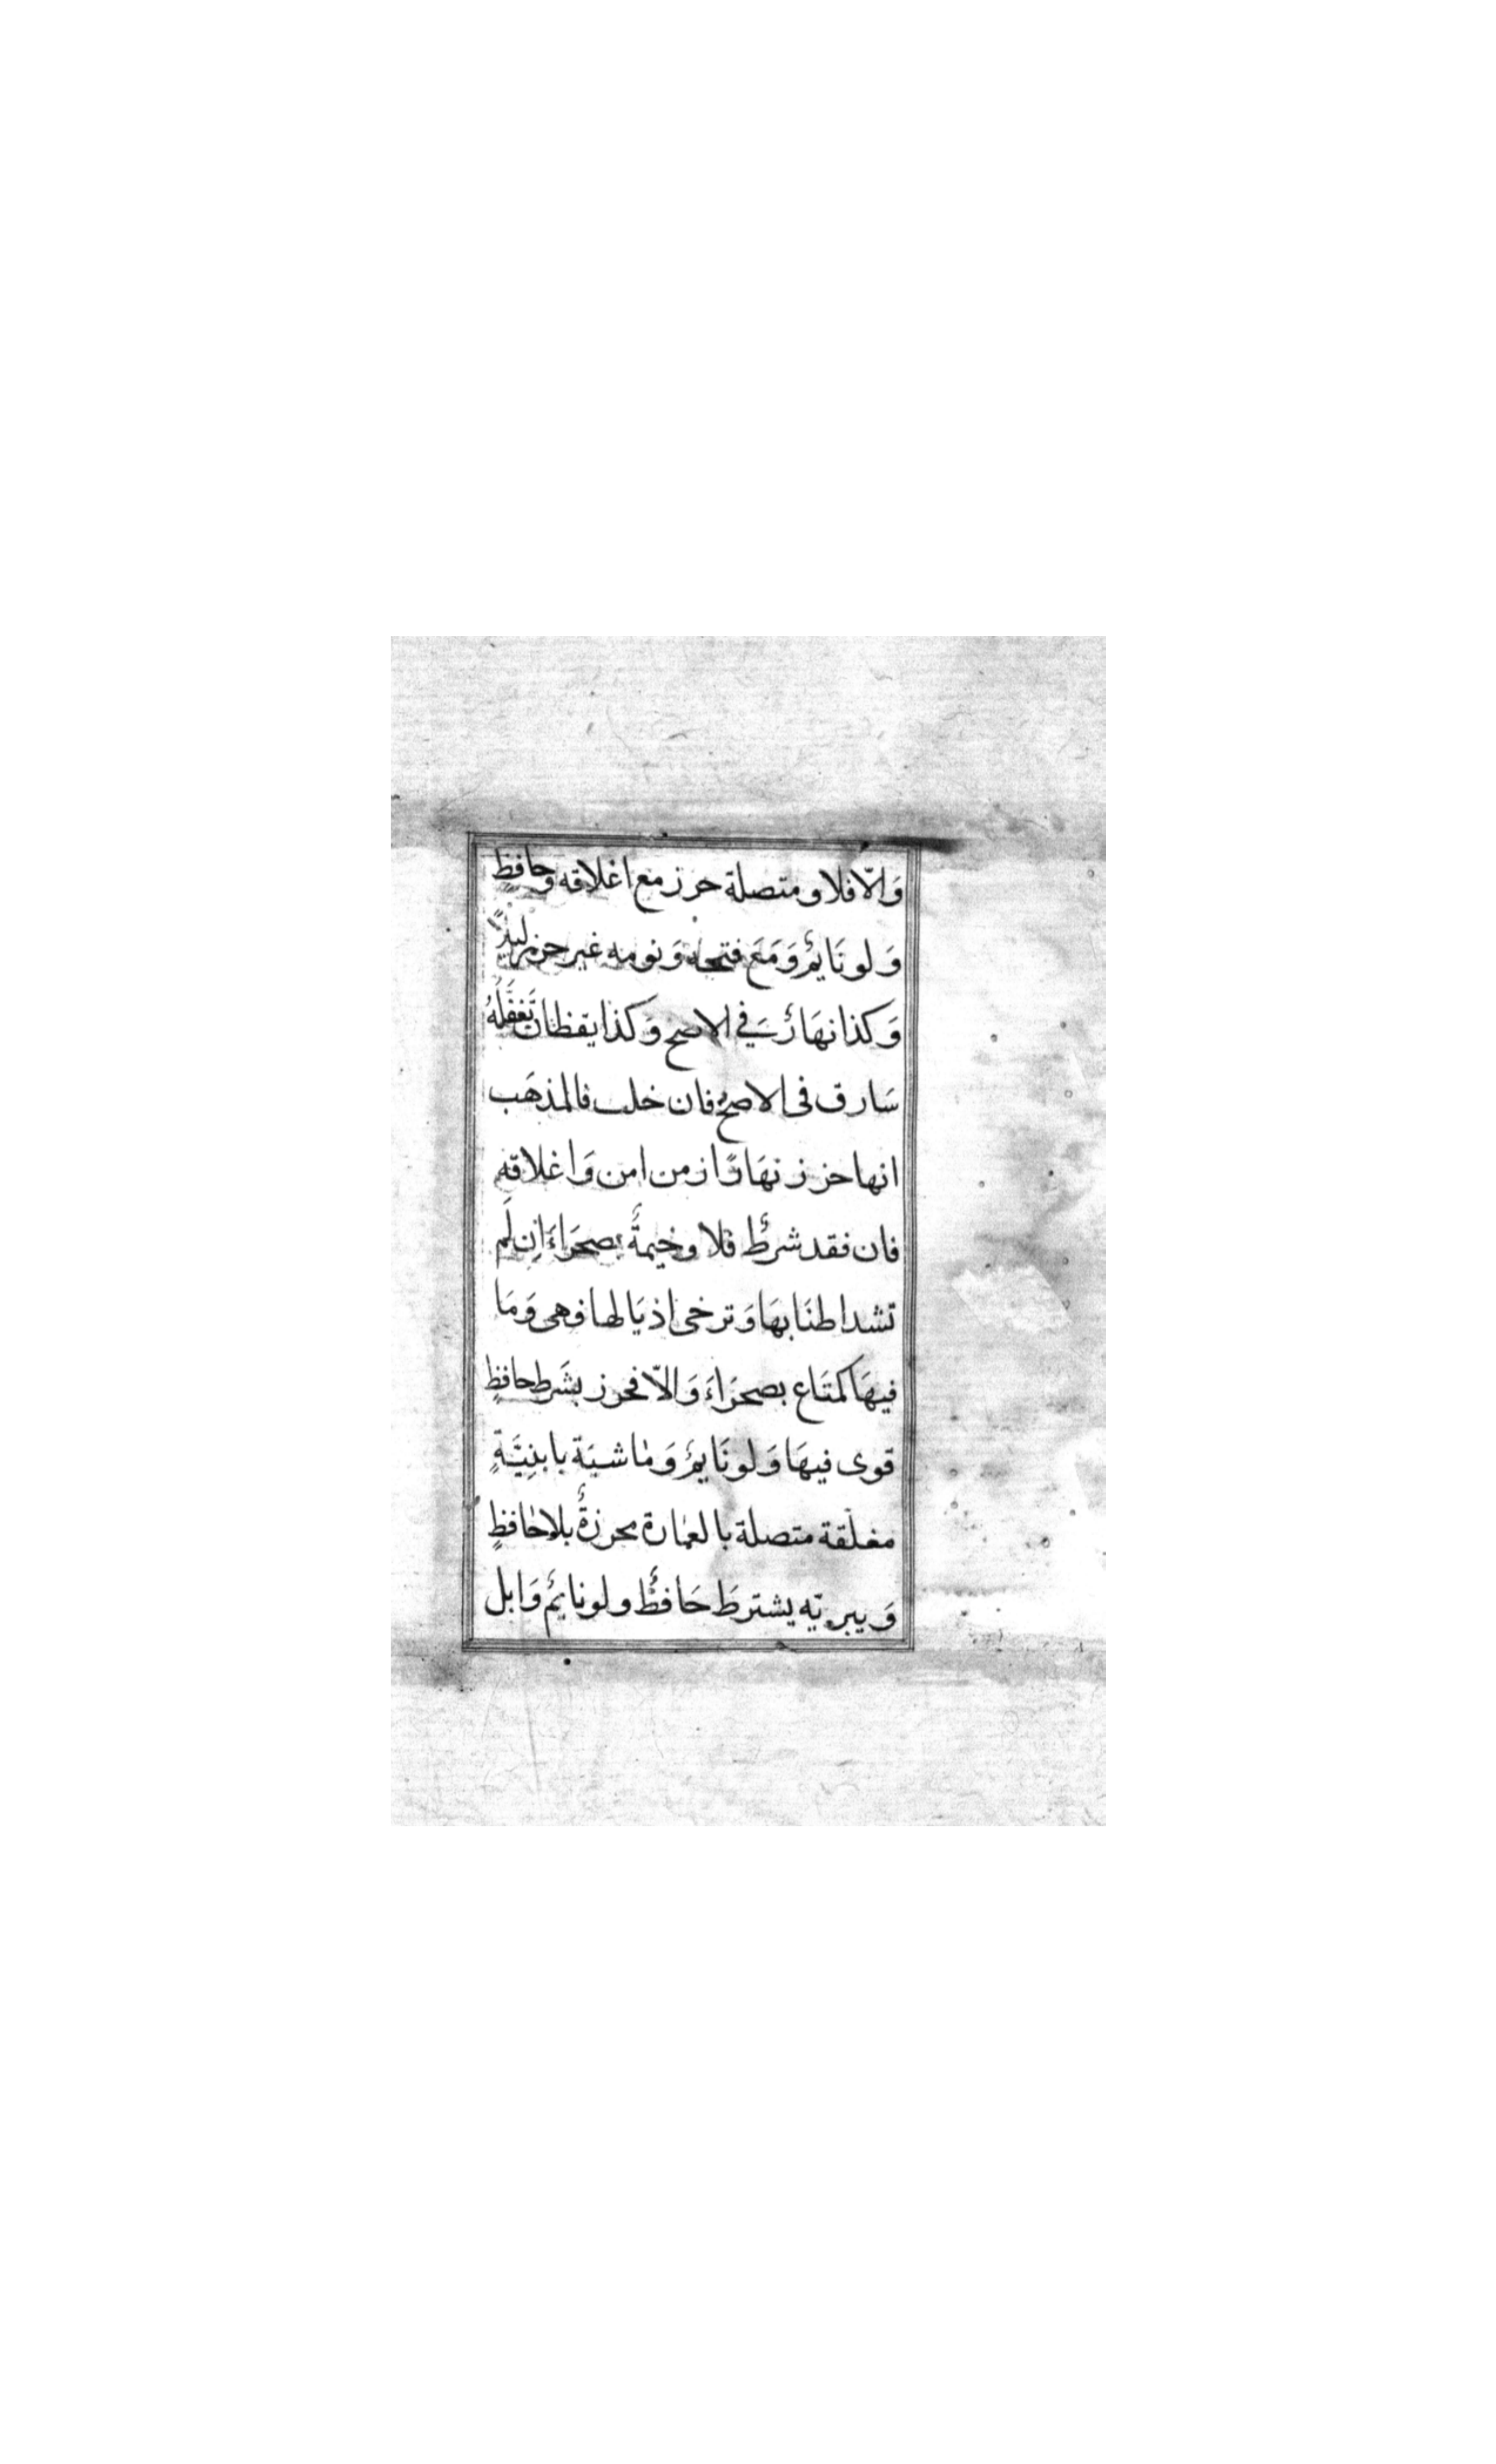 وَالّا فلا ومتصلة حرز مع اغلاقه وحافظٍ
وَلو نَايمٌ وَمَعَ فتحه وَنومه غير حرز ليلًا
وَكذا نهَارٌ في الاصح وَكذا يقظان تَغَفَّلَهُ
سَارق فى الاصح فان خلت فالمذهَب
انها حرز نهَارًا زمن امن وَاغلاقه
فان فقد شرطٌ فلا وخيمةٌ بصحرَاءَ اِن لَم
تشد اطنَابهَا وَترخى اذيَالها فهى وَمَا
فيهَا كمتَاع بصحرَاءَ وَالّا فحرز بشَرط حافظٍ
قوى فيهَا وَلو نَايمٌ وَماشيَة بابنِيَةٍ
مغلّقة متصلة بالعمارة محرزةٌ بلا حافظٍ
وَببريّه يشترطَ حَافظٌ ولو نايمٌ وَابل